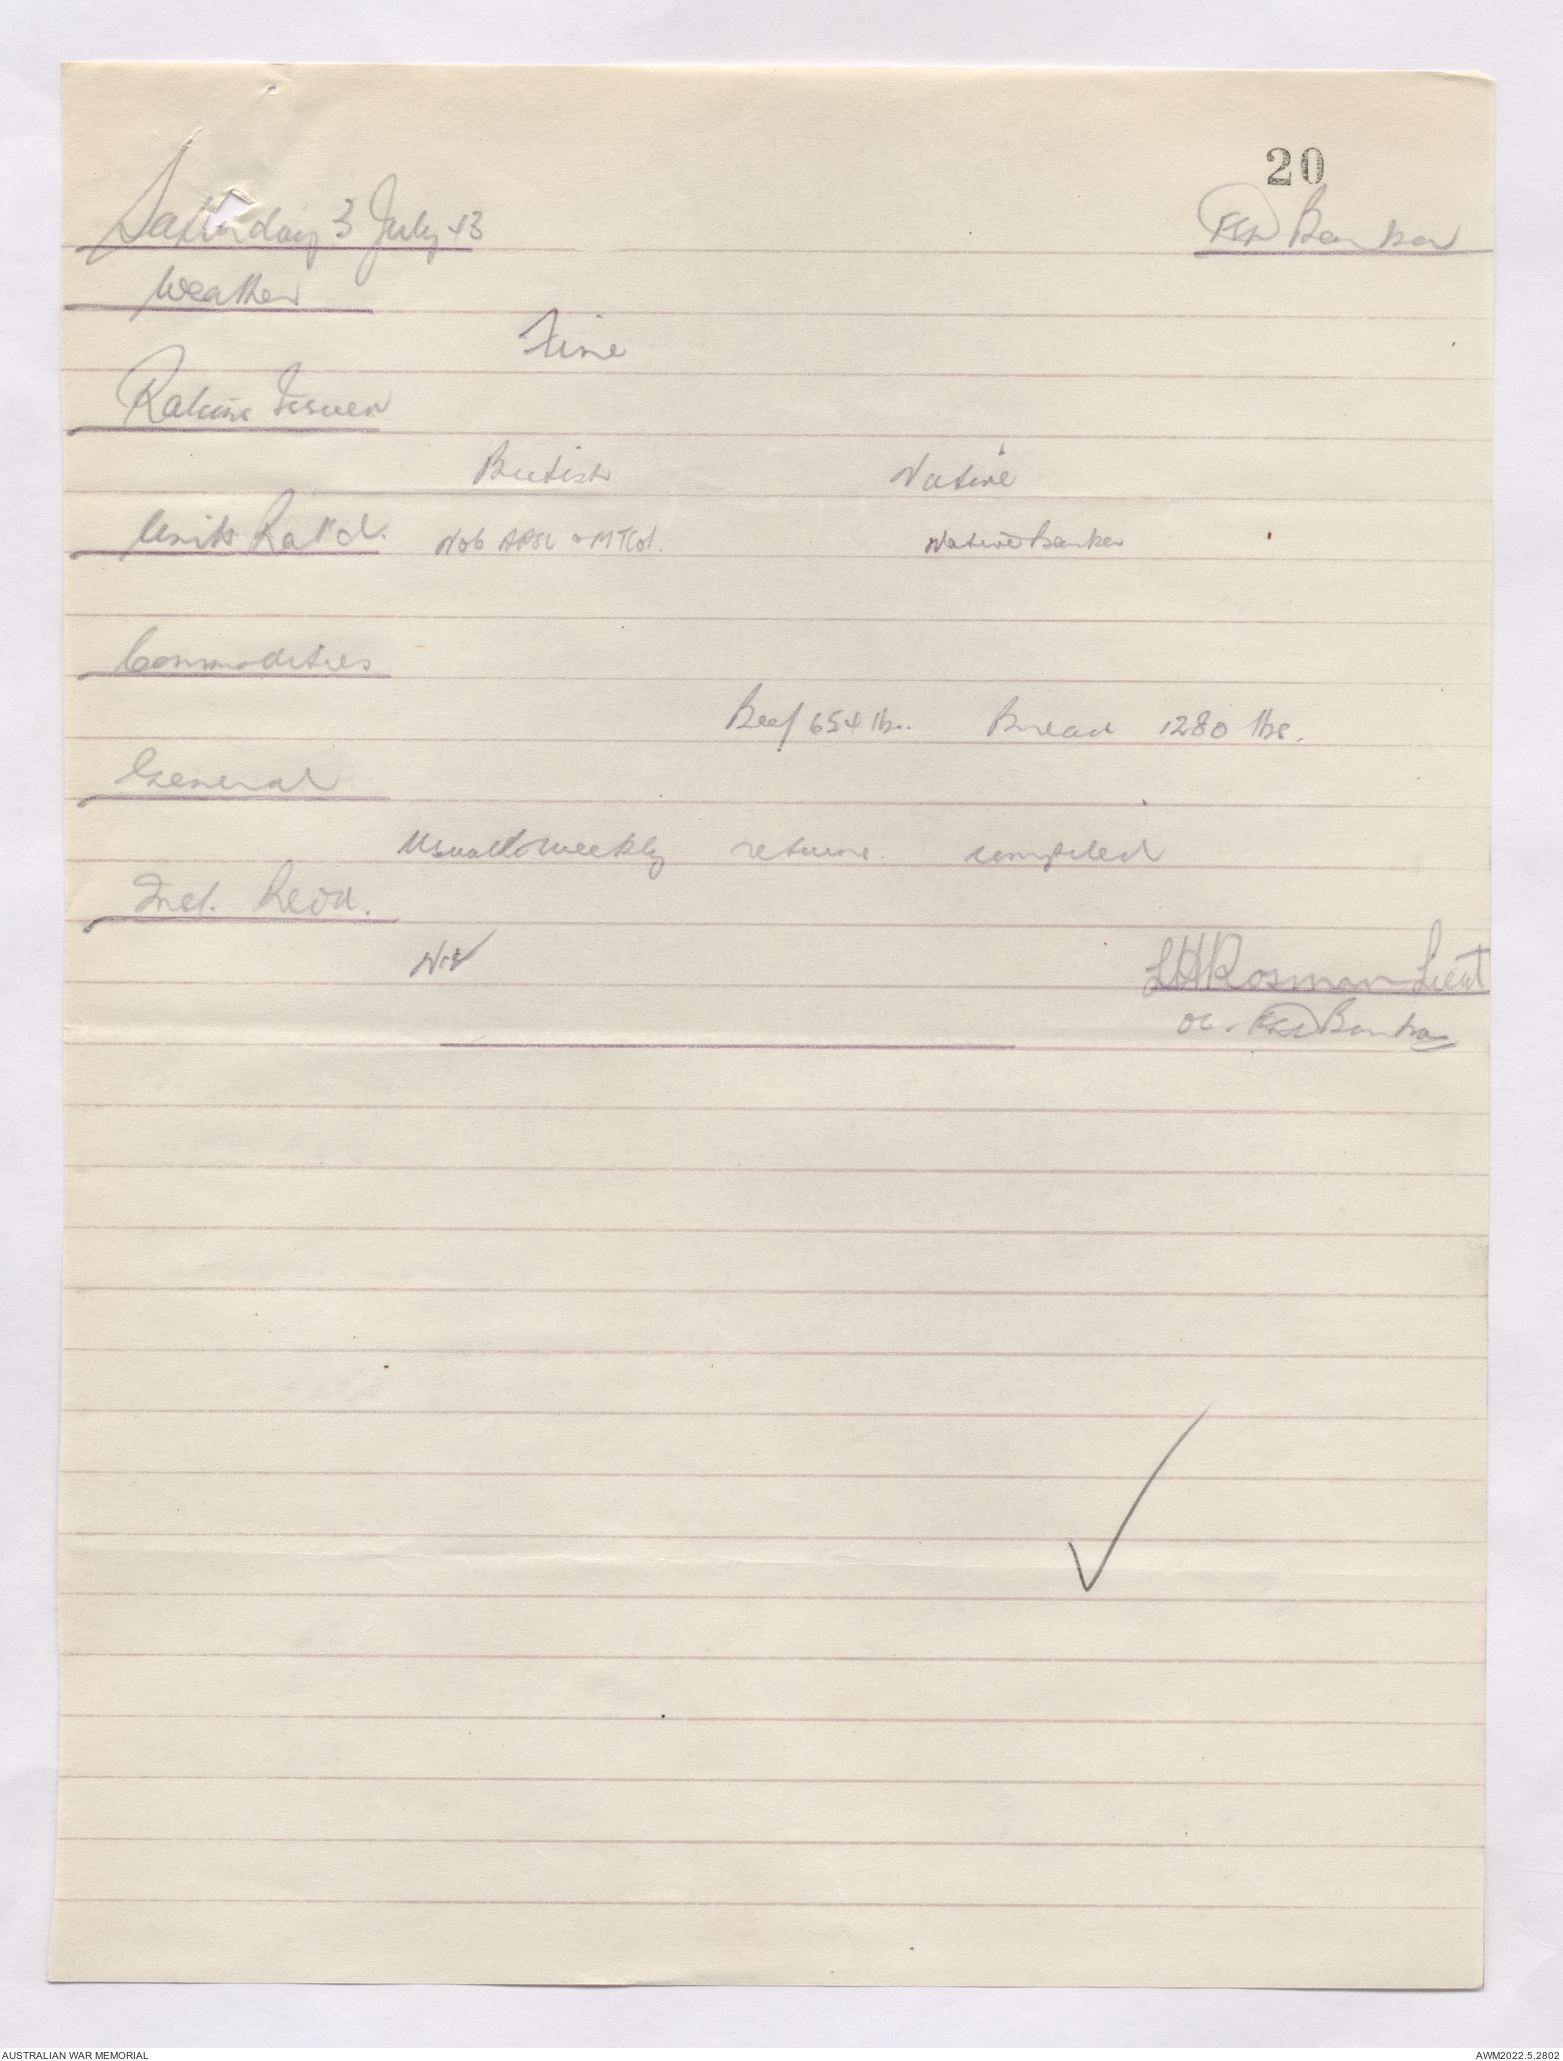 20
Saturday 3 July 43 FSD Banka
Weather
Fine
Rations Issued
British Native
Units Rat'd. No 6 APSC & MTCol. Native Banka
Commodities
Beef 654 lbs. Bread 1280 lbs.
General
Usual weekly returns. compiled
Inst. Recd.
Nil
LH Rosman Lieut
OC. FSD Banka
AUSTRALIAN WAR MEMORIAL AWM2022.5.2802